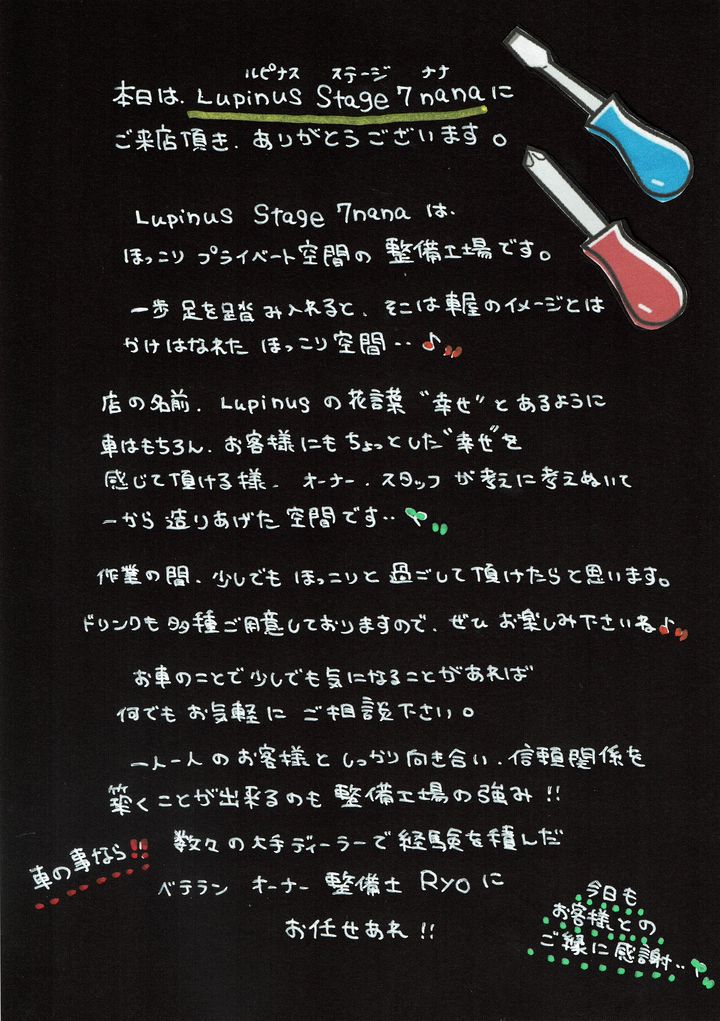 ルピナス ステージ ナナ
本日は、Lupinus Stage 7nanaに
ご来店頂き、ありがとうございます。
Lupinus Stage 7nana は、
ほっこり プライベート空間の 整備工場です。
一歩 足を踏み入れると、そこは車屋のイメージとは
かけはなれた ほっこり空間‥♪
店の名前、Lupinusの花言葉 "幸せ" とあるように
車はもちろん、お客様にもちょっとした"幸せ"を
感じて頂ける様、オーナー、スタッフ が考えに考えぬいて
一から 造りあげた 空間です‥
作業の間、少しでも ほっこりと 過ごして頂けたらと思います。
ドリンクも 多種ご用意しておりますので、ぜひ お楽しみ下さいね♪
お車のことで少しでも気になることがあれば
何でもお気軽に ご相談下さい。
一人一人のお客様と しっかり向き合い、信頼関係を
築くことが出来るのも 整備工場の強み!!
車の事なら!!
数々の大手ディーラーで経験を積んだ
ベテラン オーナー 整備士 Ryoに
お任せあれ!!
今日も
お客様との
ご縁に感謝‥